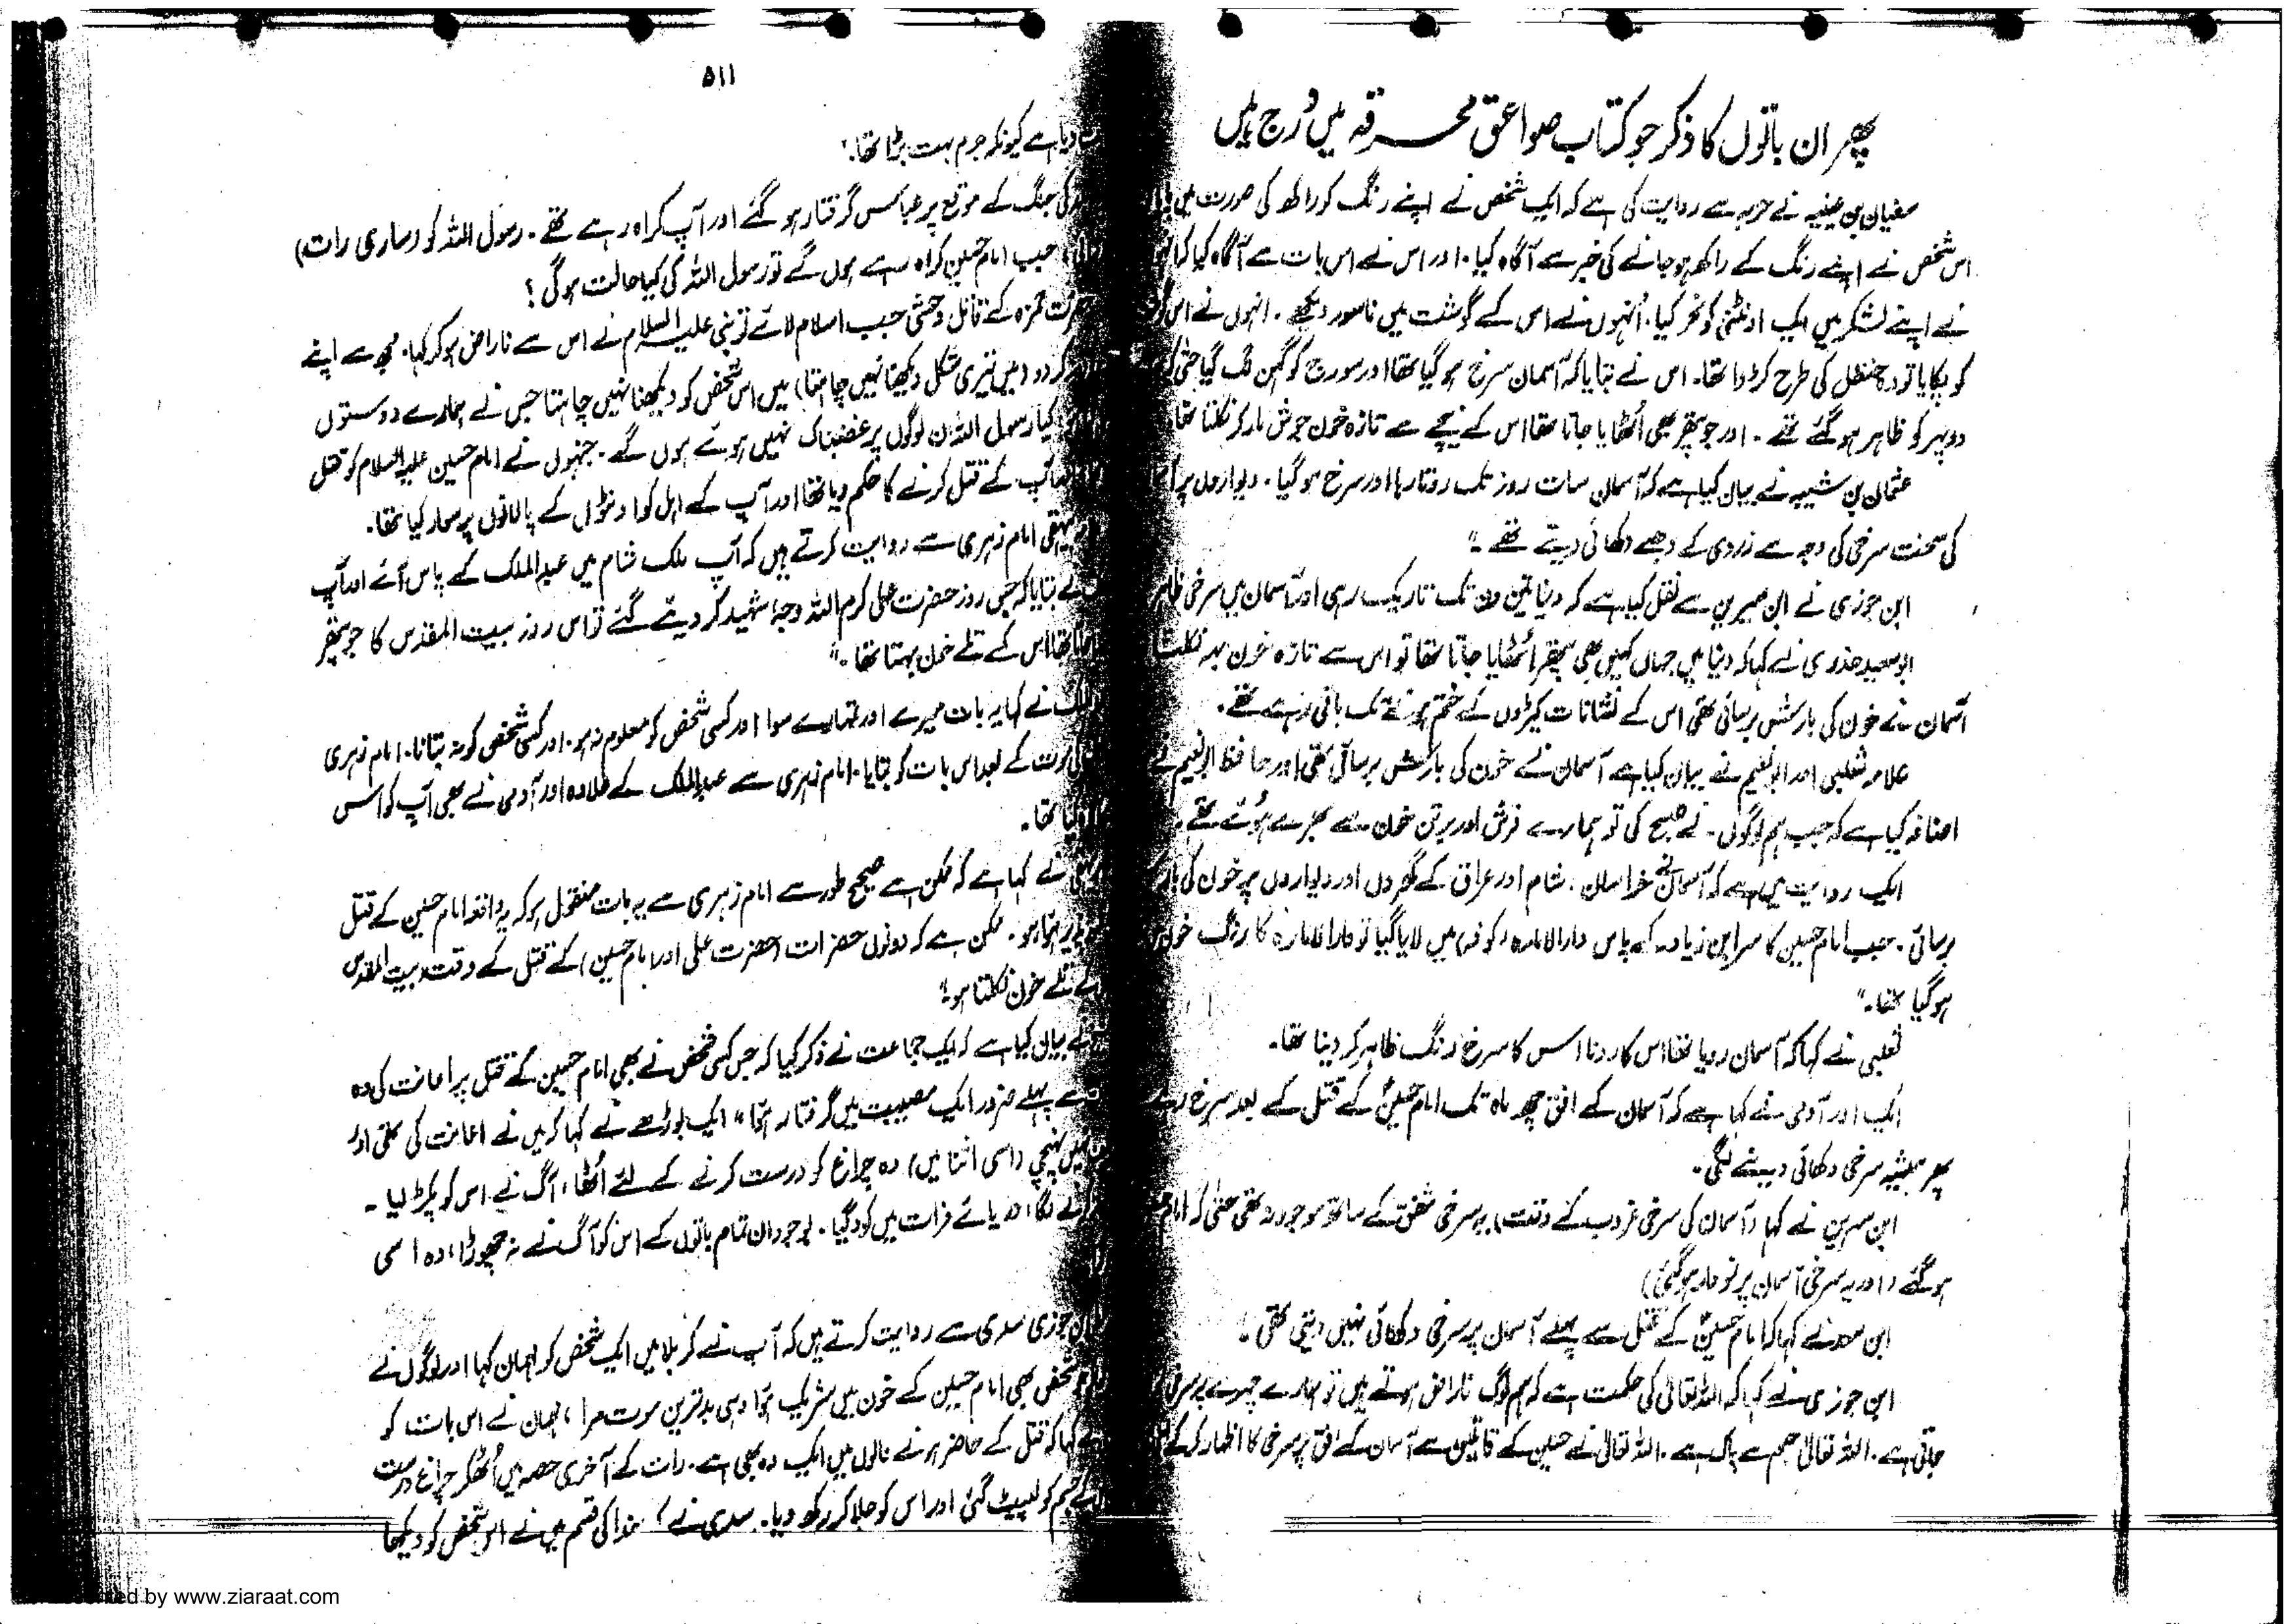 پھر ان باتوں کا ذکر جو کتاب صواعق محرقہ میں درج ہیں
سفیان بن عینیہ نے حربہ سے روایت کی ہے کہ ایک شخص نے اپنے رنگ کو راکھ کی صورت میں
اس شخص نے اپنے رنگ کے راکھ ہو جانے کی خبر سے آگاہ کیا۔ اور اس نے اس بات سے آگاہ کیا کہ
نے اپنے لشکر میں ایک اونٹنی کو نحر کیا۔ اُنہوں نے اس کے گوشت میں ناسور دیکھے۔ انہوں نے اس
کو پکایا تو وہ حنظل کی طرح کڑوا تھا۔ اس نے بتایا کہ آسمان سرخ ہو گیا تھا اور سورج کو گہن لگ گیا حتیٰ کہ
دوپہر کو ظاہر ہو گئے تھے۔ اور جو پتھر بھی اُٹھایا جاتا تھا اس کے نیچے سے تازہ خون جوش مار کر نکلتا تھا
عثمان بن شیبہ نے بیان کیا ہے کہ آسمان سات روز تک روتا رہا اور سرخ ہو گیا۔ دیواروں پر
کی سخت سرخی کی وجہ سے زردی کے دھبے دکھائی دیتے تھے۔"
ابن جوزی نے ابن سیرین سے نقل کیا ہے کہ دنیا تین دن تک تاریک رہی اور آسمان میں سرخی ظاہر
ابو سعید خدری نے کہا کہ دنیا میں جہاں کہیں بھی پتھر اُٹھایا جاتا تھا تو اس سے تازہ خون بہہ نکلتا
آسمان نے خون کی بارش برسائی تھی اس کے نشانات کپڑوں کے ختم ہونے تک باقی رہے تھے۔
علامہ ثعلبی اور ابو نعیم نے بیان کیا ہے آسمان نے خون کی بارش برسائی تھی اور حافظ ابو نعیم نے
اضافہ کیا ہے کہ جب ہم لوگوں نے صبح کی تو ہمارے فرش اور برتن خون سے بھرے ہوئے تھے۔
ایک روایت میں ہے کہ آسمان نے خراسان، شام اور عراق کے گھروں اور دیواروں پر خون کی
برسائی۔ جب امام حسین کا سر ابن زیاد کے پاس دارالامارہ (کوفہ) میں لایا گیا تو دارالامارہ کا رنگ خون
ہو گیا تھا۔"
ثعلبی نے کہا کہ آسمان رویا تھا اس کا رونا اس کا سرخ رنگ ظاہر کر دینا تھا۔
ایک اور آدمی نے کہا ہے کہ آسمان کے افق چھ ماہ تک امام حسینؑ کے قتل کے بعد سرخ رہے
پھر ہمیشہ سرخی دکھائی دینے لگی۔
ابن سیرین نے کہا (آسمان کی سرخی غروب کے وقت) یہ سرخی شفق کے ساتھ موجود نہ تھی حتیٰ کہ امام
ہو گئے (اور یہ سرخی آسمان پر نمودار ہو گئی)
ابن سعد نے کہا کہ امام حسینؑ کے قتل سے پہلے آسمان پر سرخی دکھائی نہیں دیتی تھی۔"
ابن جوزی نے کہا کہ اللہ تعالیٰ کی حکمت ہے کہ ہم لوگ ناراض ہوتے ہیں تو ہمارے چہرے پر سرخی
جاتی ہے۔ اللہ تعالیٰ جسم سے پاک ہے۔ اللہ تعالیٰ نے حسین کے قاتلین سے آسمان کے افق پر سرخی کا اظہار کر کے
۵۱۱
دیا ہے کیونکہ جرم بہت بڑا تھا۔"
کی جنگ کے موقع پر عباس گرفتار ہو گئے اور آپ کراہ رہے تھے۔ رسول اللہ کو (ساری رات)
جب امام حسین کراہ رہے ہوں گے تو رسول اللہ کی کیا حالت ہو گی؟
حمزہ کے قاتل وحشی جب اسلام لائے تو نبی علیہ السلام نے اس سے ناراض ہو کر کہا۔ مجھ سے اپنے
کر دو (میں تیری شکل دیکھنا نہیں چاہتا) میں اس شخص کو دیکھنا نہیں چاہتا جس نے ہمارے دوستوں
کیا رسول اللہ ان لوگوں پر غضبناک نہیں ہوئے ہوں گے۔ جنہوں نے امام حسین علیہ السلام کو قتل
آپ کے قتل کرنے کا حکم دیا تھا اور آپ کے اہل کو اونٹوں کے پالانوں پر سوار کیا تھا۔
بیہقی امام زہری سے روایت کرتے ہیں کہ آپ ملک شام میں عبدالملک کے پاس آئے اور آپ
نے بتایا کہ جس روز حضرت علی کرم اللہ وجہہ شہید کر دیئے گئے تو اس روز بیت المقدس کا جو پتھر
تھا اس کے تلے خون بہتا تھا۔"
نے کہا یہ بات میرے اور تمہارے سوا اور کسی شخص کو معلوم نہ ہو۔ اور کسی شخص کو نہ بتانا۔ امام زہری
کی موت کے بعد اس بات کو بتایا۔ امام زہری سے عبدالملک کے علاوہ اور آدمی نے بھی آپ کو اس
تھا۔
نے کہا ہے کہ ممکن ہے صحیح طور سے امام زہری سے یہ بات منقول ہو کہ یہ واقعہ امام حسین کے قتل
ہوا ہو۔ ممکن ہے کہ دونوں حضرات (حضرت علی اور امام حسین) کے قتل کے وقت بیت المقدس
کے تلے خون نکلتا ہو۔"
نے بیان کیا ہے کہ ایک جماعت نے ذکر کیا کہ جس کسی شخص نے بھی امام حسین کے قتل پر اعانت کی وہ
سے پہلے ضرور ایک مصیبت میں گرفتار ہوا" ایک بوڑھے نے کہا کہ میں نے اعانت کی تھی اور
نہیں پہنچی (اسی اثنا میں) وہ چراغ کو درست کرنے کے لئے اُٹھا، آگ نے اس کو پکڑ لیا۔
کرنے لگا، دریائے فرات میں کود گیا۔ باوجود ان تمام باتوں کے اس کو آگ نے نہ چھوڑا، وہ اسی
جوزی سدی سے روایت کرتے ہیں کہ آپ نے کربلا میں ایک شخص کو مہمان کہا اور لوگوں نے
شخص بھی امام حسین کے خون میں شریک ہوا وہی بدترین موت مرا، مہمان نے اس بات کو
کہا کہ قتل کے حاضر ہونے والوں میں ایک وہ بھی ہے۔ رات کے آخری حصہ میں اُٹھ کر چراغ درست
جسم کو لپیٹ گئی اور اس کو جلا کر رکھ دیا۔ سدی نے کہا خدا کی قسم میں نے اس شخص کو دیکھا
by www.ziaraat.com